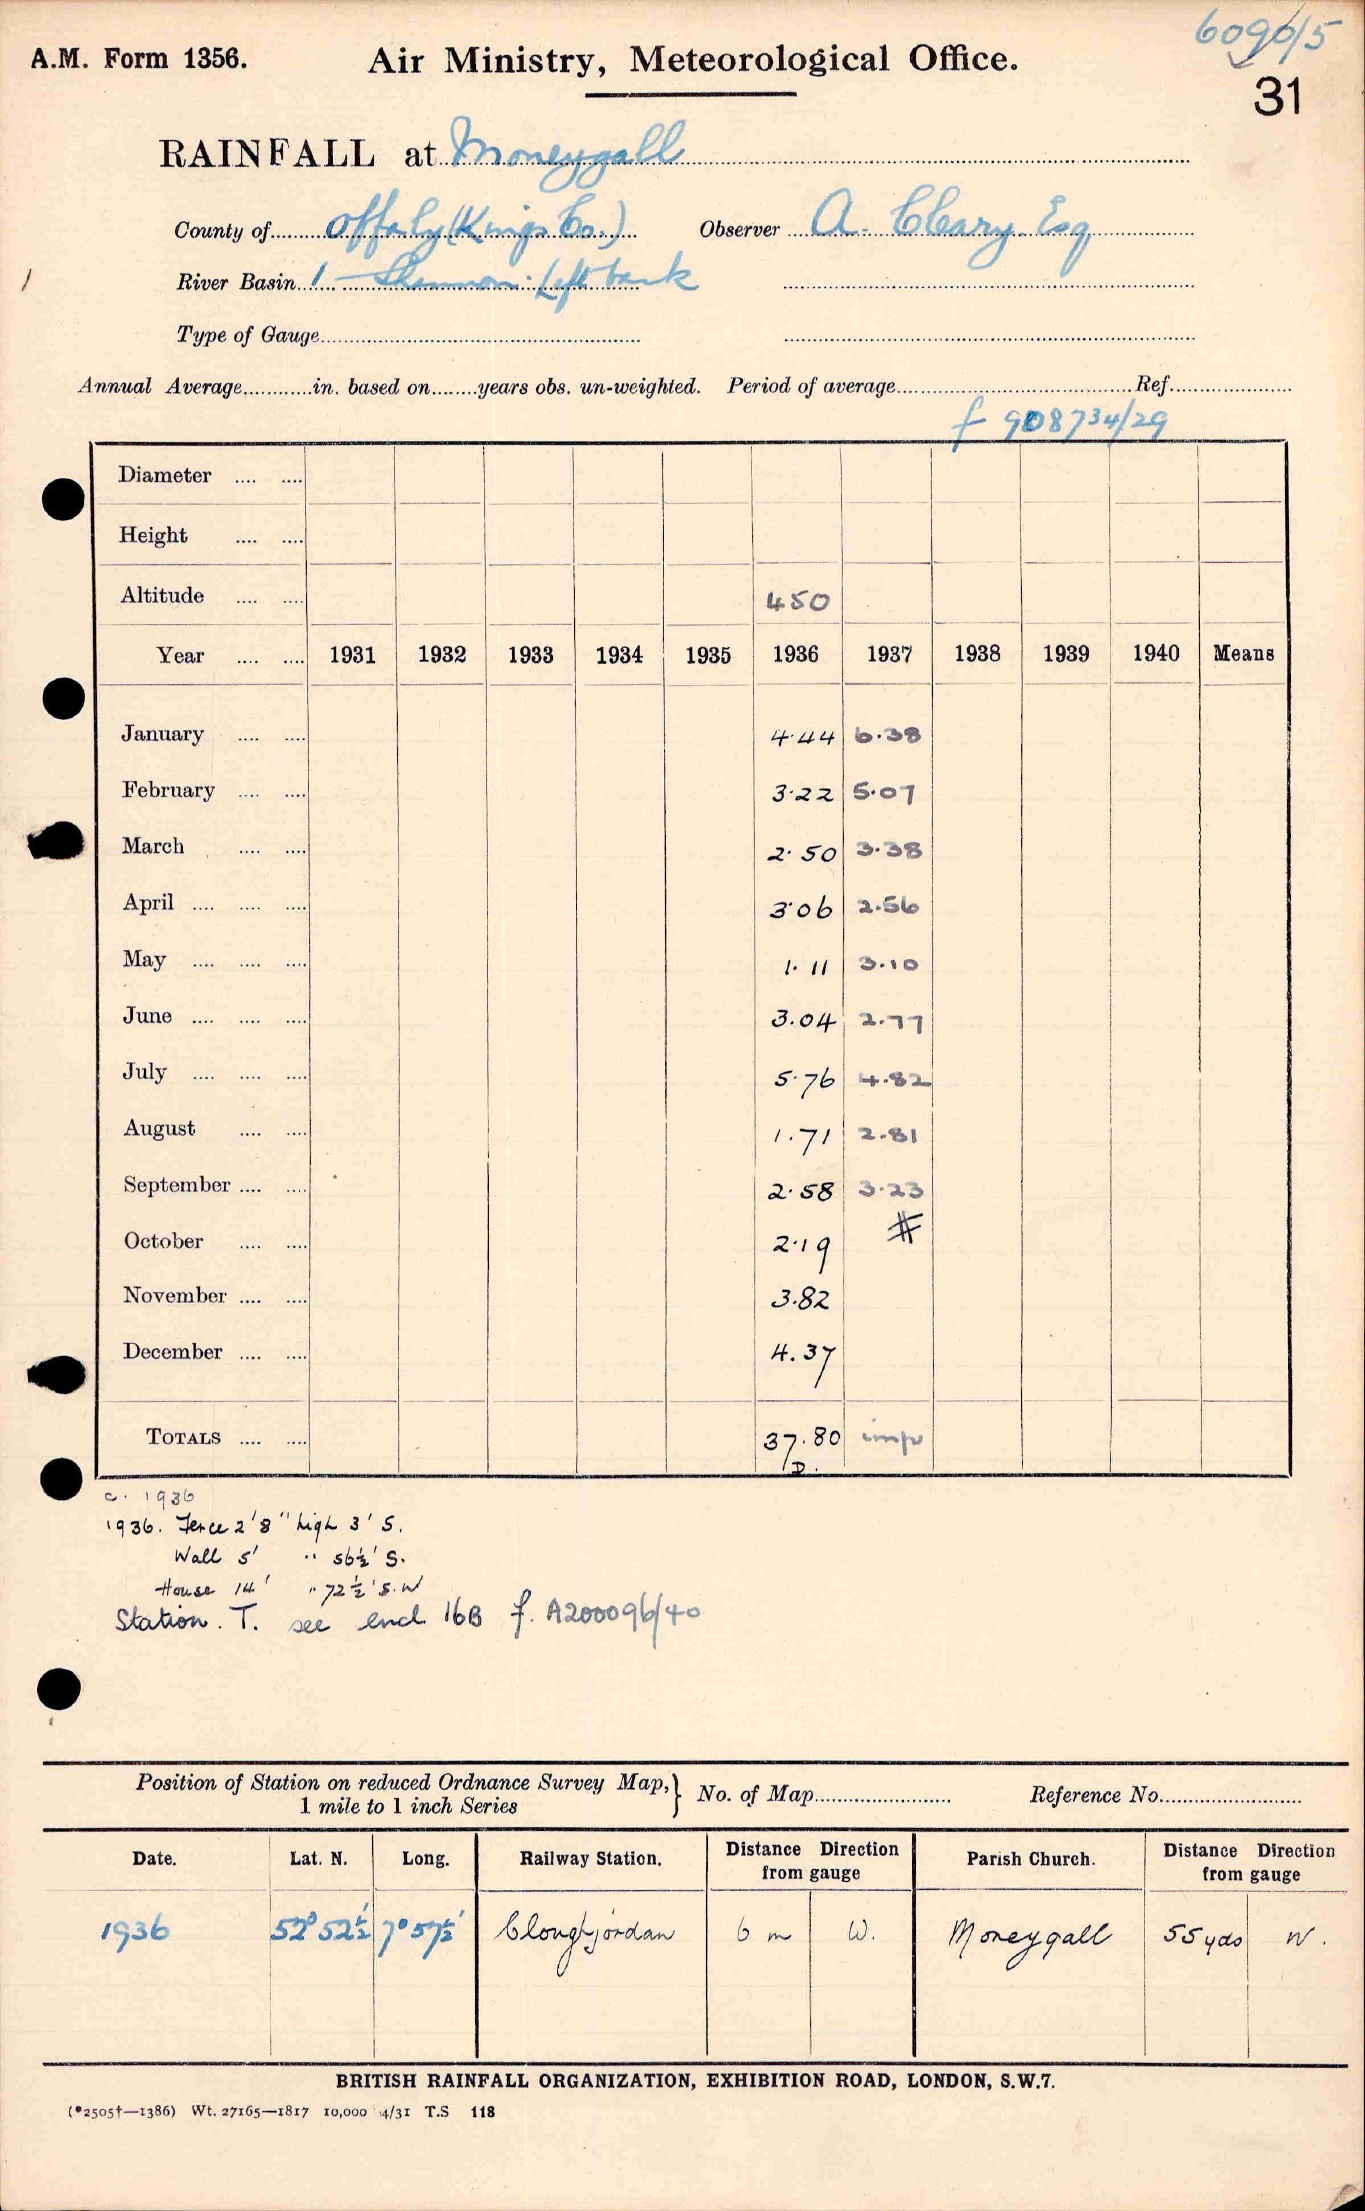 6090/5
A.M. Form 1356. Air Ministry, Meteorological Office.
31
RAINFALL at Moneygall
County of Offaly (Kings Co.) Observer A. Cleary Esq
River Basin 1 - Shannon: Left bank
Type of Gauge
Annual Average in. based on years obs. un-weighted. Period of average Ref.
f 908734/29
Diameter
Height
Altitude 450
Year 1931 1932 1933 1934 1935 1936 1937 1938 1939 1940 Means
January 4.44 6.38
February 3.22 5.07
March 2.50 3.38
April 3.06 2.56
May 1.11 3.10
June 3.04 2.77
July 5.76 4.82
August 1.71 2.81
September 2.58 3.23
October 2.19 #
November 3.82
December 4.37
TOTALS 37.80 imp
D.
c. 1936
1936. Fence 2'8" high 3' S.
Wall 5' " 56½' S.
House 14' " 72½' S.W
Station. T. see encl 16B f. A200096/40
Position of Station on reduced Ordnance Survey Map, } No. of Map Reference No.
1 mile to 1 inch Series
Date. Lat. N. Long. Railway Station. Distance Direction from gauge Parish Church. Distance Direction from gauge
1936 52° 52½' 7° 57½' Cloughjordan 6 m W. Moneygall 55 yds N.
BRITISH RAINFALL ORGANIZATION, EXHIBITION ROAD, LONDON, S.W.7.
(*2505†—1386) Wt. 27165—1817 10,000 4/31 T.S 118